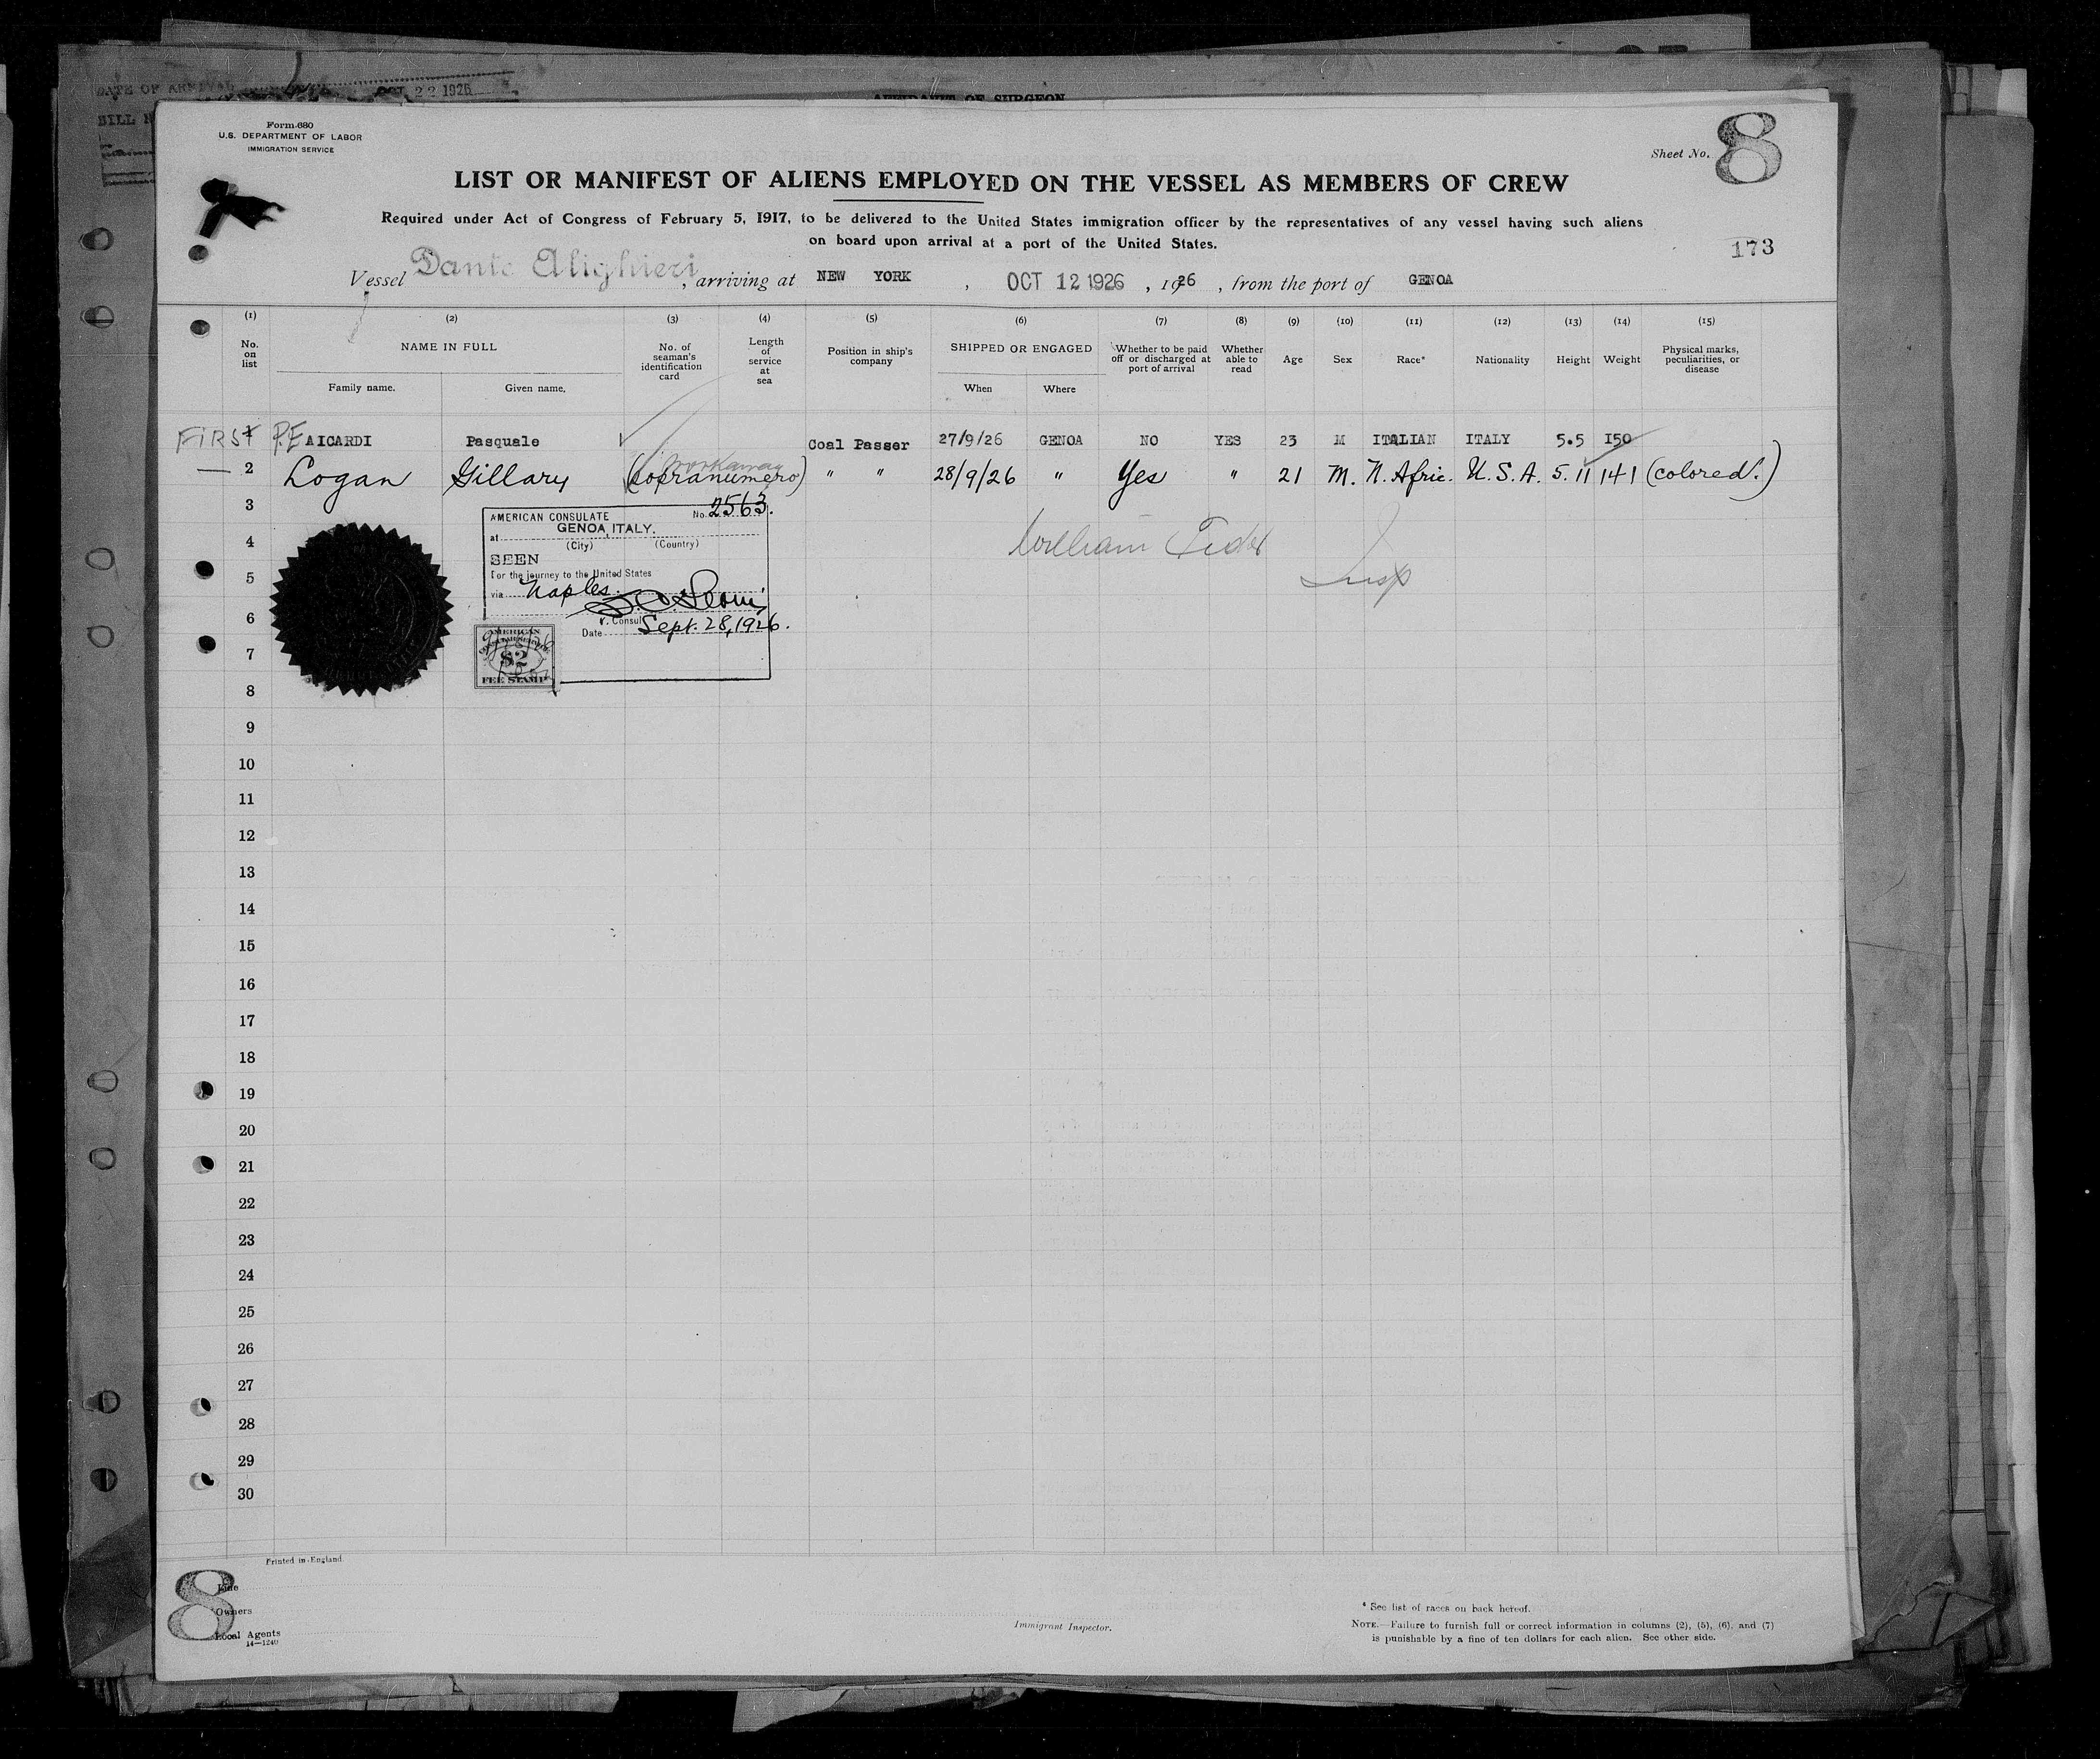 DATE OF ARRIVAL OCT 22 1926
AFFIDAVIT OF SURGEON
BILL
Form 680
U.S. DEPARTMENT OF LABOR
IMMIGRATION SERVICE
Sheet No. 8
LIST OR MANIFEST OF ALIENS EMPLOYED ON THE VESSEL AS MEMBERS OF CREW
Required under Act of Congress of February 5, 1917, to be delivered to the United States immigration officer by the representatives of any vessel having such aliens
on board upon arrival at a port of the United States.
173
Vessel Dante Alighieri, arriving at NEW YORK, OCT 12 1926, 1926, from the port of GENOA
(1) (2) (3) (4) (5) (6) (7) (8) (9) (10) (11) (12) (13) (14) (15)
No. on list
NAME IN FULL
Family name. Given name.
No. of seaman's identification card
Length of service at sea
Position in ship's company
SHIPPED OR ENGAGED
When Where
Whether to be paid off or discharged at port of arrival
Whether able to read
Age
Sex
Race*
Nationality
Height
Weight
Physical marks, peculiarities, or disease
FIRST P.E AICARDI Pasquale Coal Passer 27/9/26 GENOA NO YES 23 M ITALIAN ITALY 5.5 150
workaway
2 Logan Gillary (sopranumero) " " 28/9/26 " Yes " 21 M. N. Afric. U.S.A. 5.11 141 (colored.)
3
AMERICAN CONSULATE No. 2563.
at GENOA, ITALY.
(City) (Country)
SEEN
For the journey to the United States
via Naples.
V. Consul
Date Sept. 28, 1926.
AMERICAN
$2
FEE STAMP
William
Insp
4
5
6
7
8
9
10
11
12
13
14
15
16
17
18
19
20
21
22
23
24
25
26
27
28
29
30
Printed in England
8
Line
Owners
Local Agents
14—1240
Immigrant Inspector.
* See list of races on back hereof.
NOTE.—Failure to furnish full or correct information in columns (2), (5), (6), and (7)
is punishable by a fine of ten dollars for each alien. See other side.